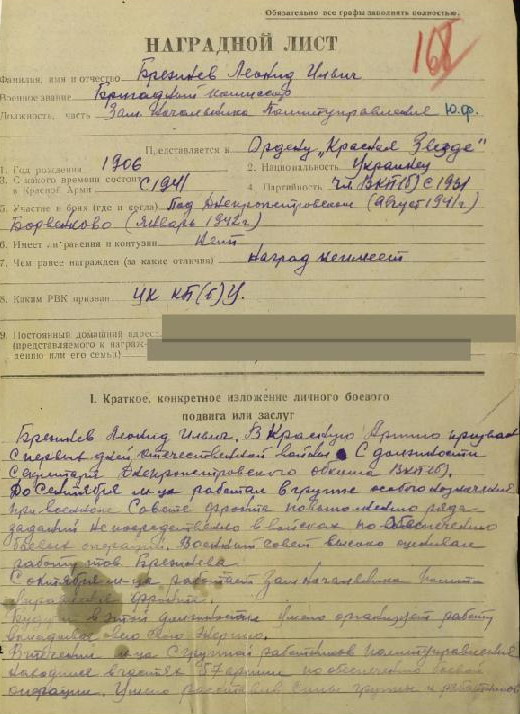 Обязательно все графы заполнять полностью.
168
НАГРАДНОЙ ЛИСТ
Фамилия, имя и отчество Брежнев Леонид Ильич
Военное звание Бригадный комиссар
Должность, часть Зам. Начальника Политуправления Ю.Ф.
Представляется к Ордену „Красная Звезда"
1. Год рождения 1906 2. Национальность Украинец
3. С какого времени состоит в Красной Армии С 1941 4. Партийность чл. ВКП(б) с 1931
5. Участие в боях (где и когда) Под Днепропетровском (Август 1941 г.)
Барвенково (январь 1942 г.)
6. Имеет ли ранения и контузии Нет
7. Чем ранее награжден (за какие отличия) Наград не имеет
8. Каким РВК призван ЦК КП(б)У.
9. Постоянный домашний адрес:
(представляемого к награж-
дению или его семьи)
I. Краткое, конкретное изложение личного боевого
подвига или заслуг
Брежнев Леонид Ильич. В Красную Армию призван
с первых дней отечественной войны с должности
Секретаря Днепропетровского обкома ВКП(б).
До Сентября м-ца работал в группе особого назначения
при военном Совете фронта по выполнению ряда
заданий непосредственно в войсках по обеспечению
боевых операций. Военный совет высоко оценивал
работу тов Брежнева
С октября м-ца работает Зам. Начальника Полит-
управления фронта.
Будучи в этой должности умело организует работу
свою энергию.
В течении м-ца с группой работников политуправления
находился в частях 57 армии по обеспечению боевой
операции. Умело расставив силы группы и работников